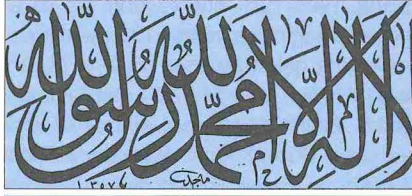 لا إله إلا الله محمد رسول الله
ماجد